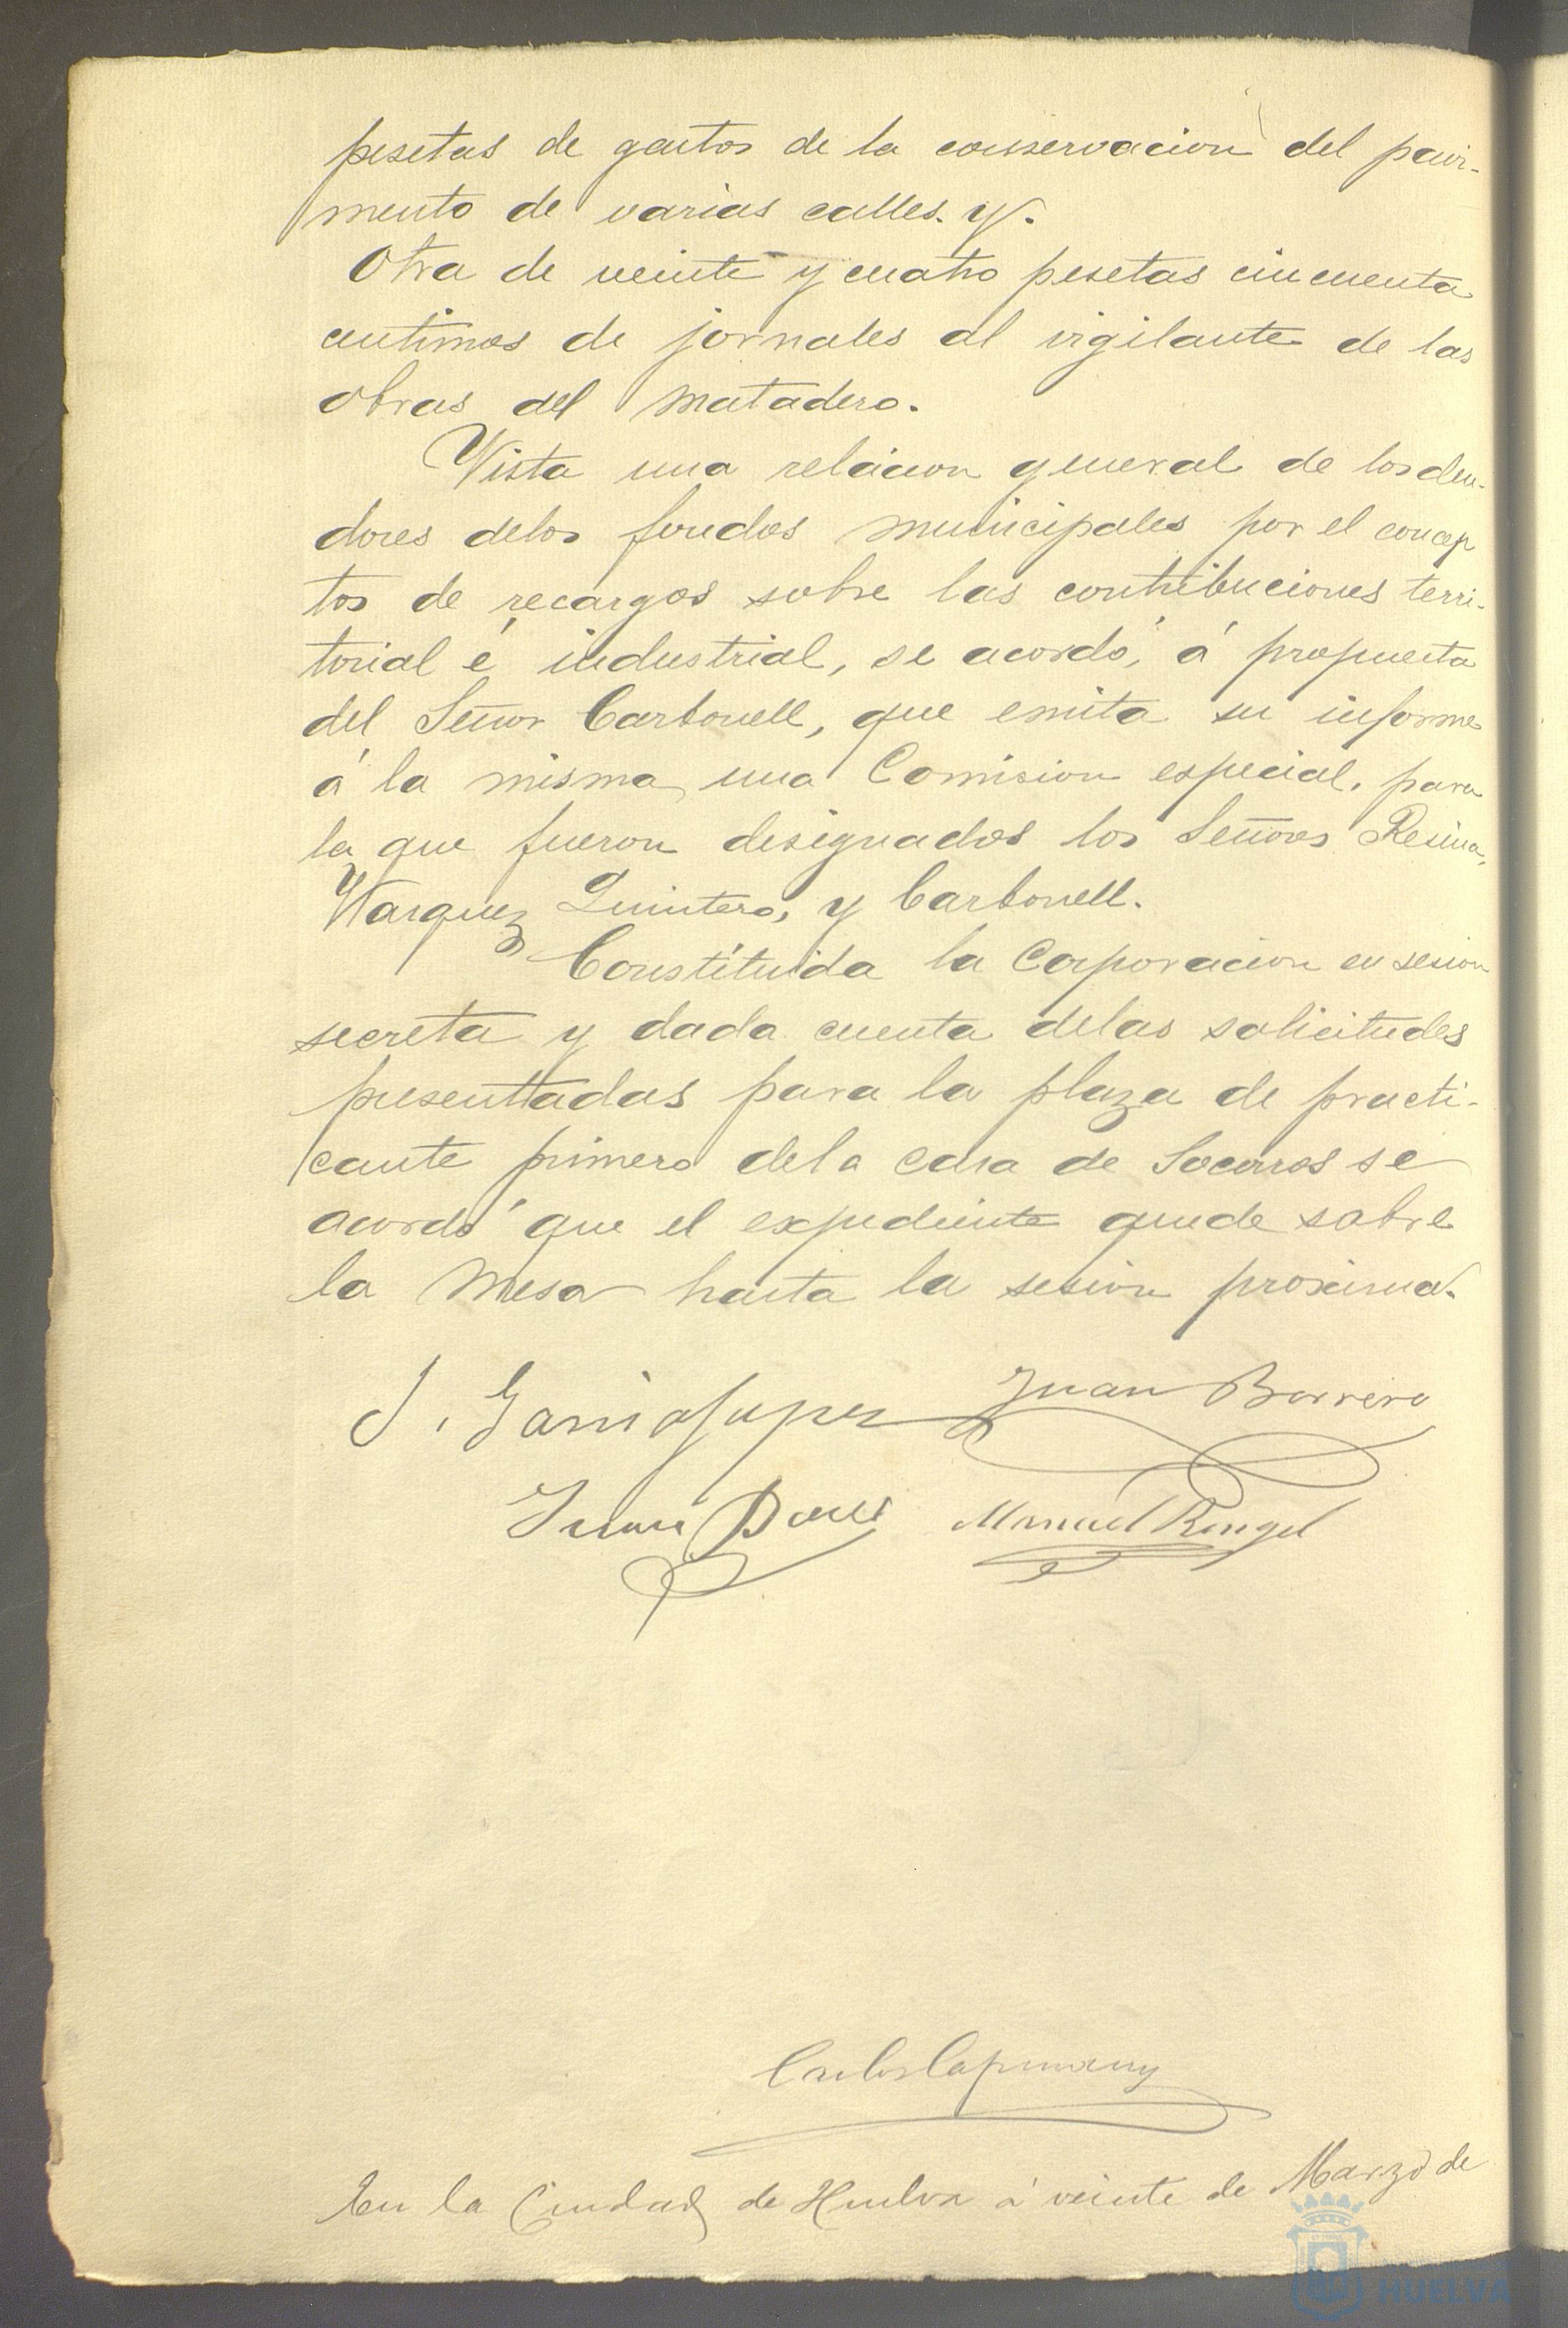 pesetas de gastos de la conservacion del pavi-
mento de varias calles. y.
Otra de veinte y cuatro pesetas cincuenta
centimos de jornales al vigilante de las
obras del matadero.
Vista una relacion general de los deu-
dores delos fondos municipales por el concep
tos de recargos sobre las contribuciones terri-
torial é industrial, se acordó, á propuesta
del Señor Carbonell, que emita su informe
á la misma una Comision especial, para
la que fueron designados los Señores Resina,
Vazquez Quintero, y Carbonell.
Constituida la Corporacion en sesion
secreta y dada cuenta delas solicitudes
presenttadas para la plaza de practi-
cante primero dela casa de Socorros se
acordó que el expediente quede sobre
la Mesa hasta la sesion proxima.
J. Garcia Lopez Juan Borrero
Juan Manuel Rengel
Carlos Capmany
En la Ciudad de Huelva á veinte de Marzo de
HUELVA